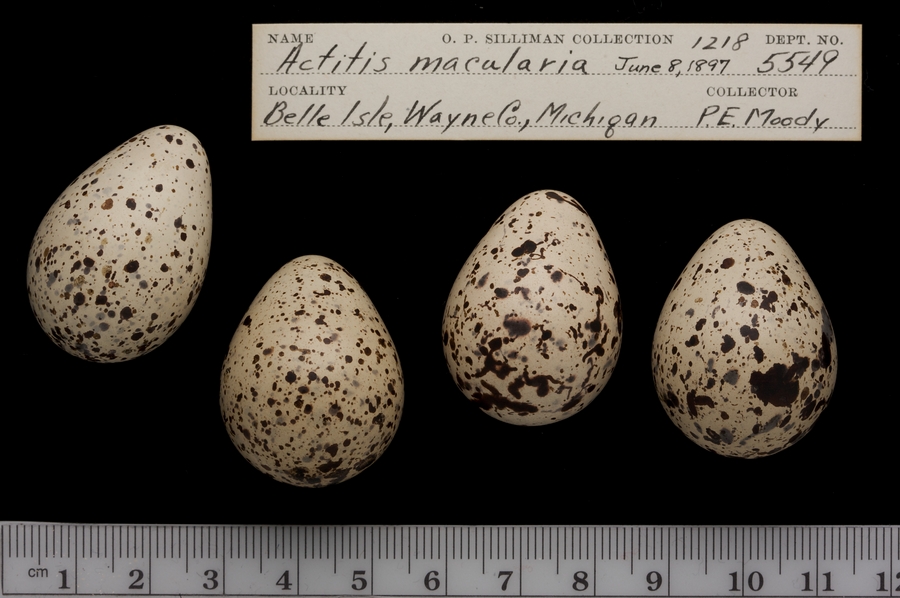 NAME O. P. SILLIMAN COLLECTION 1218 DEPT. NO.
Actitis macularia June 8, 1897 5549
LOCALITY COLLECTOR
Belle Isle, Wayne Co., Michigan P. E. Moody
cm 1 2 3 4 5 6 7 8 9 10 11 12